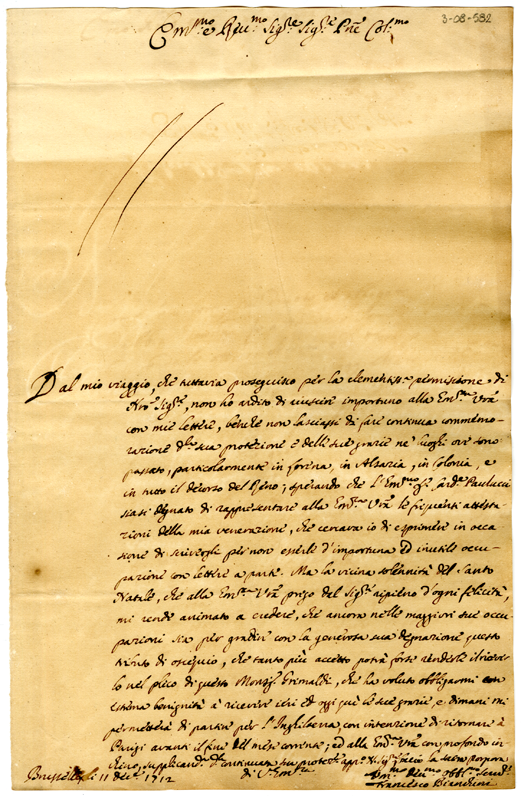 3-08-592
Em.mo e Rev.mo Sig.re Sig.re P.ne Col.mo
Dal mio viaggio, che tuttavia proseguisco per la clementiss.a permissione di
N.ro Sig.re, non ho ardito di riuscire importuno alla Em.za V.ra
con mie lettere, benche non lasciassi di fare continua commemo-
razione della sua protezione e delle sue grazie ne' luoghi ove sono
passato, particolarmente in Lorena, in Alsazia, in Colonia, e
in tutto il decorso del Reno; sperando che l'Em.mo Sig.r Card.e Paulucci
siasi degnato di rappresentare alla Em.za V.ra le frequenti attesta-
zioni della mia venerazione, che cercava io di esprimere in occa-
sione di scrivergli per non esserle d'importuna ed inutile occu-
pazione con lettere a parte. Ma la vicina solennità del Santo
Natale, che alla Em.za V.ra prego dal Sig.re ripieno d'ogni felicità,
mi rende animato a credere, che ancora nelle maggiori sue occu-
pazioni sia per gradire con la generosa sua degnazione questo
tributo di ossequio, che tanto più accetto potrà forse renderle il ricever
lo nel plico di questo Mons.re Grimaldi, che ha voluto obbligarmi con
estrema benignità a ricevere ieri ed oggi quì le sue grazie, e dimani mi
permetterà di partire per l'Inghilterra con intenzione di ritornare a
Parigi avanti il fine del mese corrente; ed alla Em.za V.ra con profondo in-
chino, supplicandola di continuata sua protez.e appr.o N. Sig.re bacio la sacra porpora
Brusselles li 11 Dec.e 1712
di V. Em.za
Um.mo Dev.mo Obbl.mo Serv.re
Francesco Bianchini